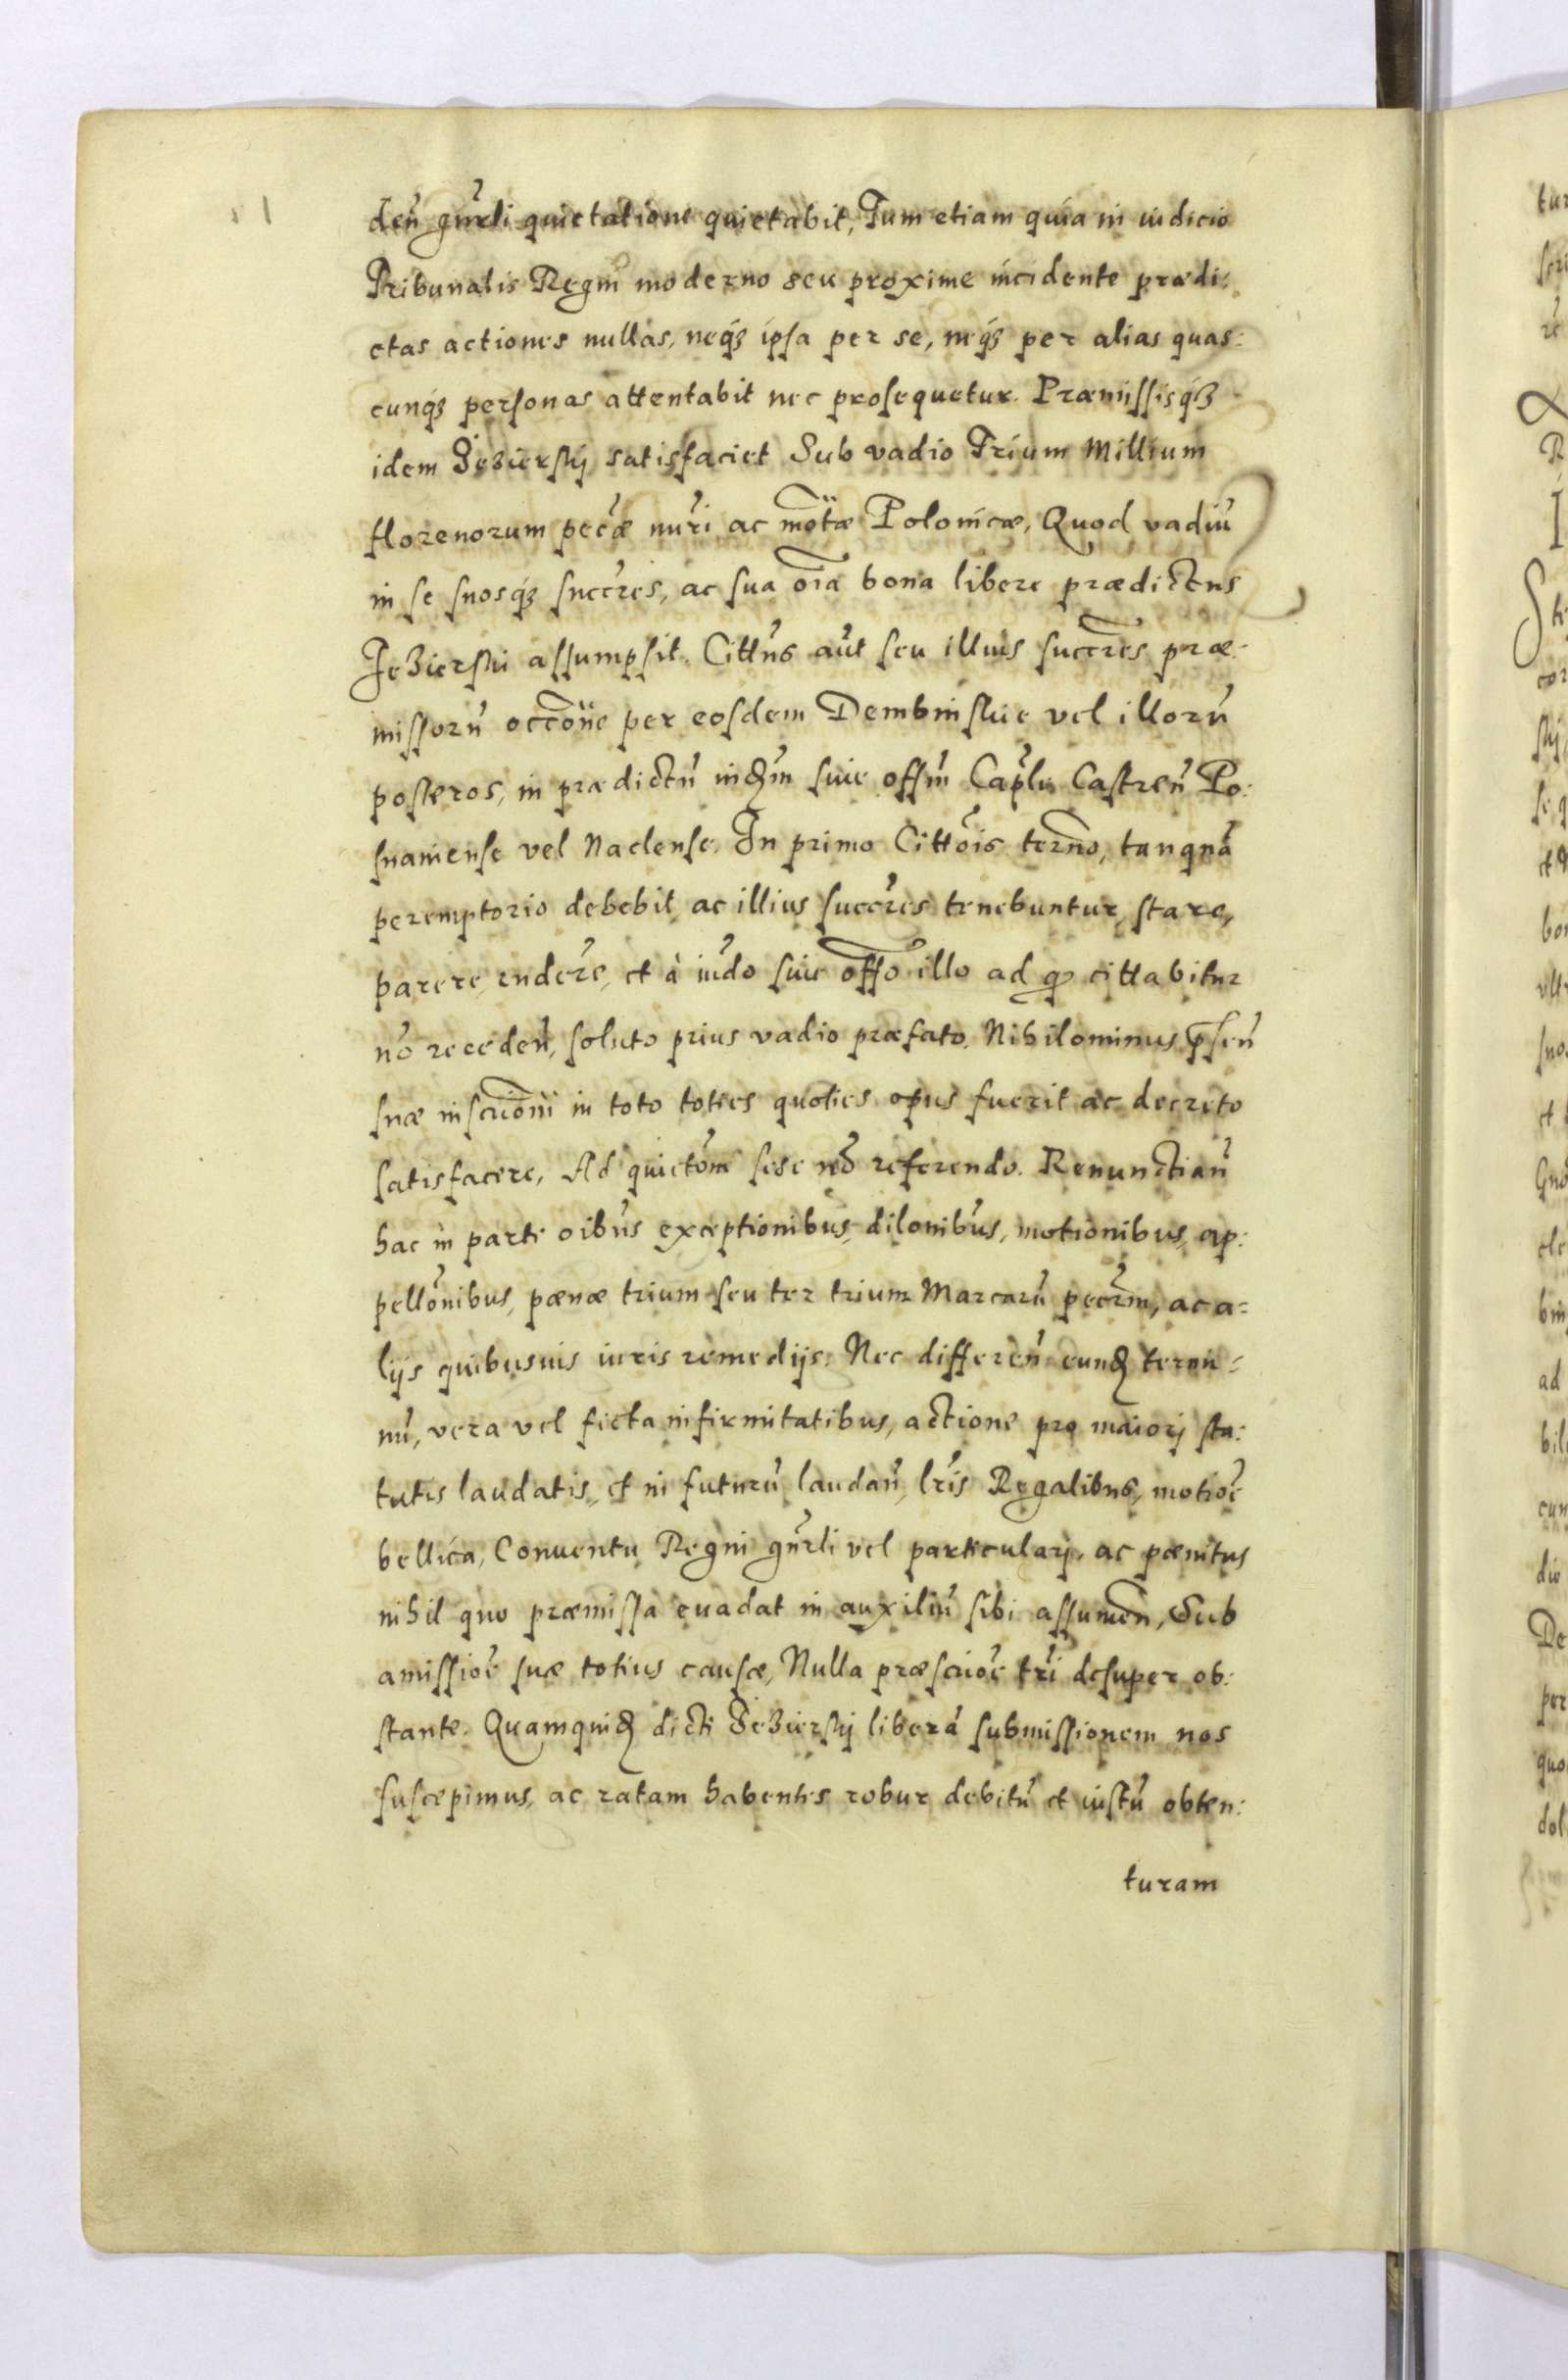 deñ gñrli quietatione quietabit, Tum etiam quia in iudicio
Tribunalis Regni moderno seu proxime incidente prædi:
ctas actiones nullas, neq́ꝫ ipsa per se, neq́ꝫ per alias quas:
cunq́ꝫ personas attentabit nec prosequetur. Præmissisq́ꝫ
idem Jezierskj satisfaciet Sub vadio Trium Millium
florenorum pecæ nũri ac mõtæ Polonicæ, Quod vadiũ
in se suosq́ꝫ succres, ac sua oĩa bona libere prædictus
Jezierski assumpsit. Cittũs aũt seu illius succres præ:
missorũ occõne per eosdem Dembinskie vel illorũ
posteros, in prædictũ suie offm̃ Caplẽ Castreñ Po:
snaniense vel Naclense. In primo Cittõis terño, tanquã
peremptorio debebit ac illius succres tenebuntur, stare,
parere, rñdere, et à iudo suie offo illo ad qꝫ cittabitur
nõ recedeñ, soluto prius vadio præfato. Nihilominus p̃señ
suæ inscriõni in toto toties quoties opus fuerit ac decreto
satisfacere, Ad quietõne sese nõ referendo. Renunctiañ
hac in parte oibus exceptionibus, dilonibus, motionibus, ap:
pellõnibus, pænæ trium seu ter trium Marcarũ pecrm̃, ac a=
lijs quibusuis iuris remedijs. Nec differeñ eund termi=
nũ, vera vel ficta infirmitatibus, actione pro maiorj sta:
tutis laudatis, et in futurũ laudañ, lris Regalibus, motioẽ
bellica, Conuentu Regni gñrli vel particularj, ac pænitus
nihil quo præmissa euadat in auxiliũ sibi assumeñ, Sub
amissioẽ suæ totius causæ, Nulla præscrioẽ tri desuper ob:
stante. Quamquid dicti Jezierskj liberã submissionem nos
suscepimus, ac ratam habentes robur debitũ et iustũ obten:
turam